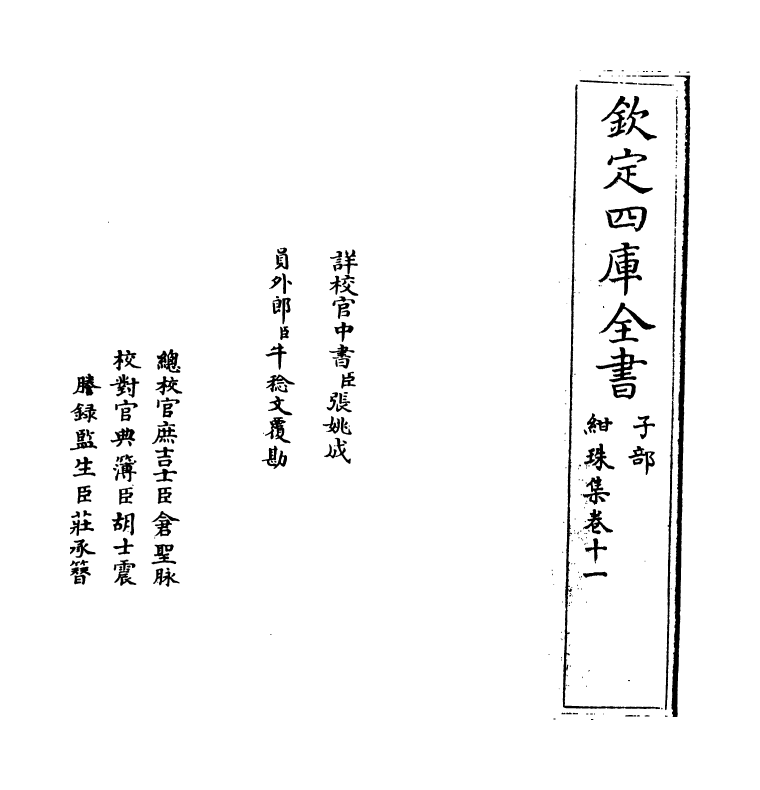 欽定四庫全書
子部
紺珠集卷十一
詳校官中書臣張姚成
員外郎臣牛稔文覆勘
總校官庶吉士臣倉聖脉
校對官典簿臣胡士震
謄錄監生臣莊承簪